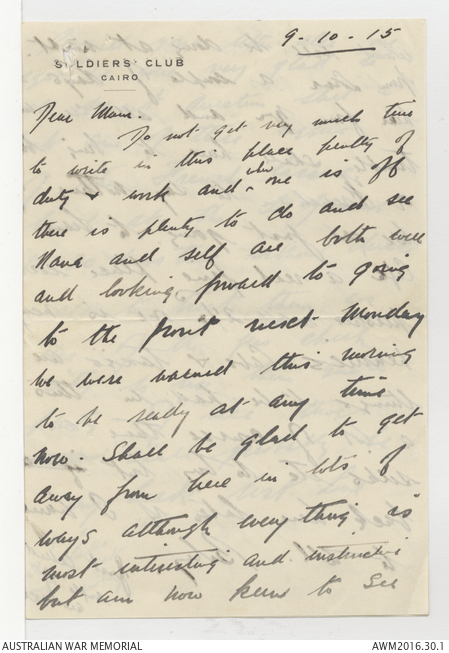 9-10-15
SOLDIERS' CLUB
CAIRO
Dear Mum.
Do not get very much time
to write in this place plenty of
duty & work and when one is off
there is plenty to do and see
and self are both well
and looking forward to going
to the front next Monday
we were warned this morning
to be ready at any time
now. Shall be glad to get
away from here in lots of
ways although every thing is
most interesting and instructive
but am now keen to see
AUSTRALIAN WAR MEMORIAL
AWM2016.30.1